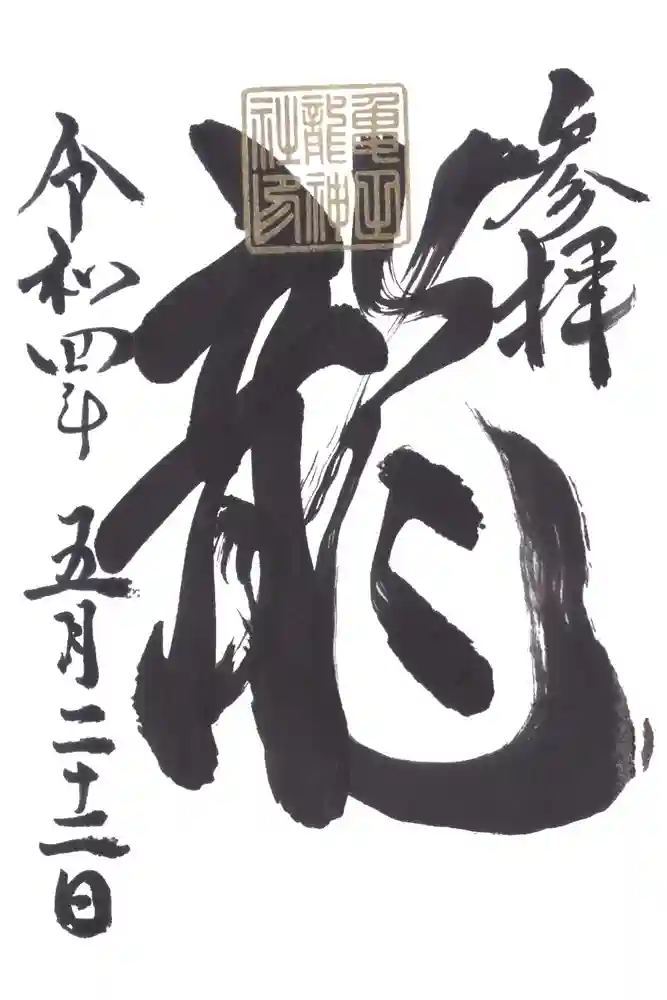 参拝
龍
龜
龍神
社印
令和四年 五月二十二日